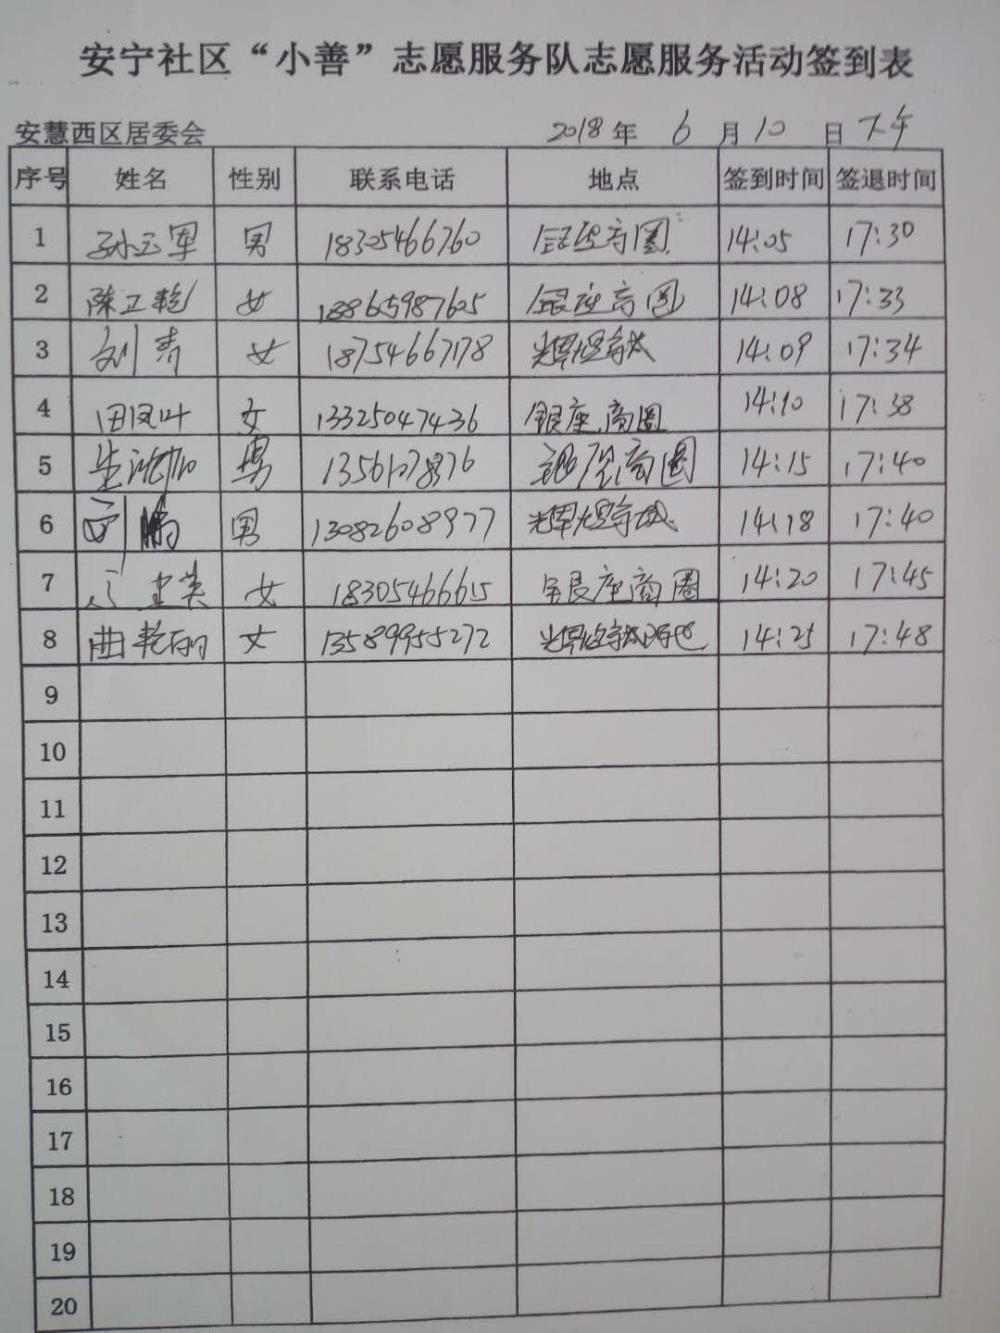 安宁社区“小善”志愿服务队志愿服务活动签到表
安慧西区居委会 2018年 6 月 10 日 下午
序号 姓名 性别 联系电话 地点 签到时间 签退时间
1 孙玉军 男 18305466760 银座商圈 14:05 17:30
2 陈卫乾 女 18865987605 银座商圈 14:08 17:33
3 刘青 女 18754667178 14:09 17:34
4 田凤叶 女 13325047436 银座商圈 14:10 17:38
5 男 银座商圈 14:15 17:40
6 鹏 男 13082608977 14:18 17:40
7 女 18305466615 银座商圈 14:20 17:45
8 曲艳丽 女 13589955272 14:25 17:48
9
10
11
12
13
14
15
16
17
18
19
20